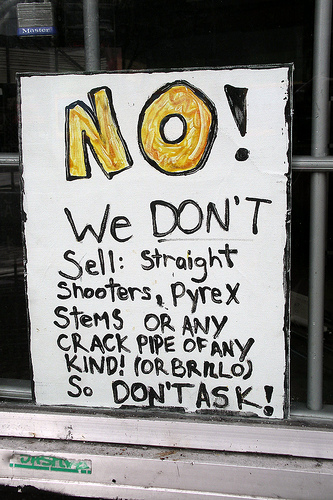 Master
NO!
We DON'T
Sell: Straight
Shooters, Pyrex
Stems OR ANY
CRACK PIPE OF ANY
KIND! (OR BRILLO)
So DON'T ASK!